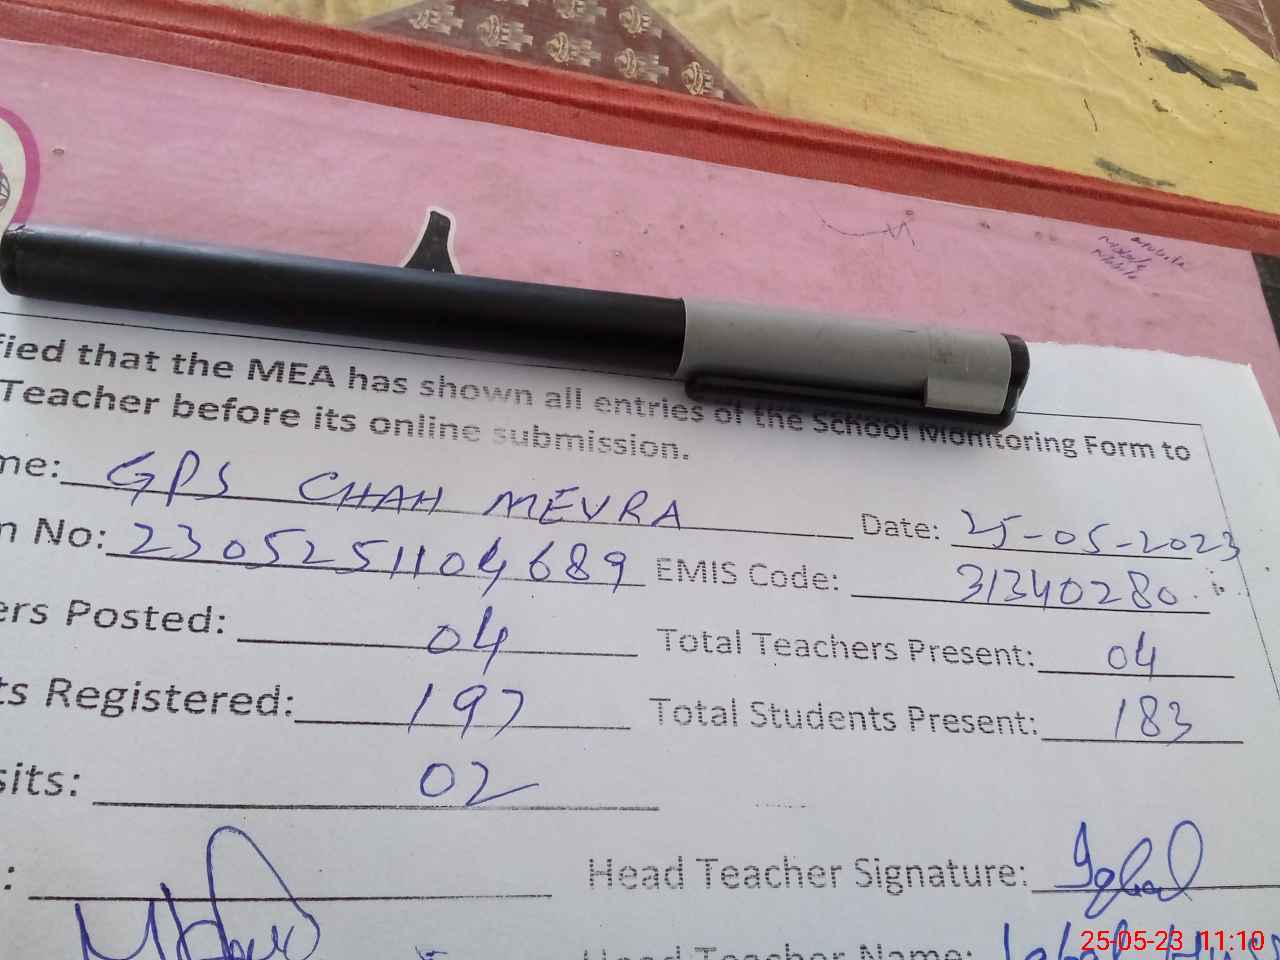 fied that the MEA has shown all entries of the School Monitoring Form to
Teacher before its online submission.
me: GPS CHAH MEVRA
Date: 25-05-2023
n No: 2305251104689
EMIS Code: 31340280
ers Posted: 04
Total Teachers Present: 04
ts Registered: 197
Total Students Present: 183
sits: 02
: Head Teacher Signature: Iqbal
Head Teacher Name: Iqbal
25-05-23 11:10